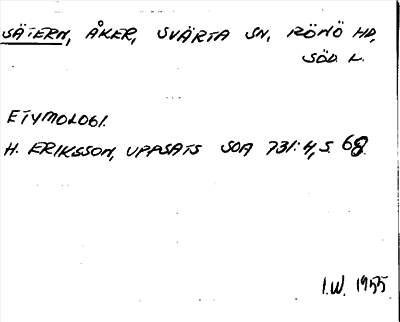 SÄTERN, ÅKER, SVÄRTA SN, RÖNÖ HD,
SÖD. L.
ETYMOLOGI.
H. ERIKSSON, UPPSATS SOA 731:4, S. 68.
I.W. 1955